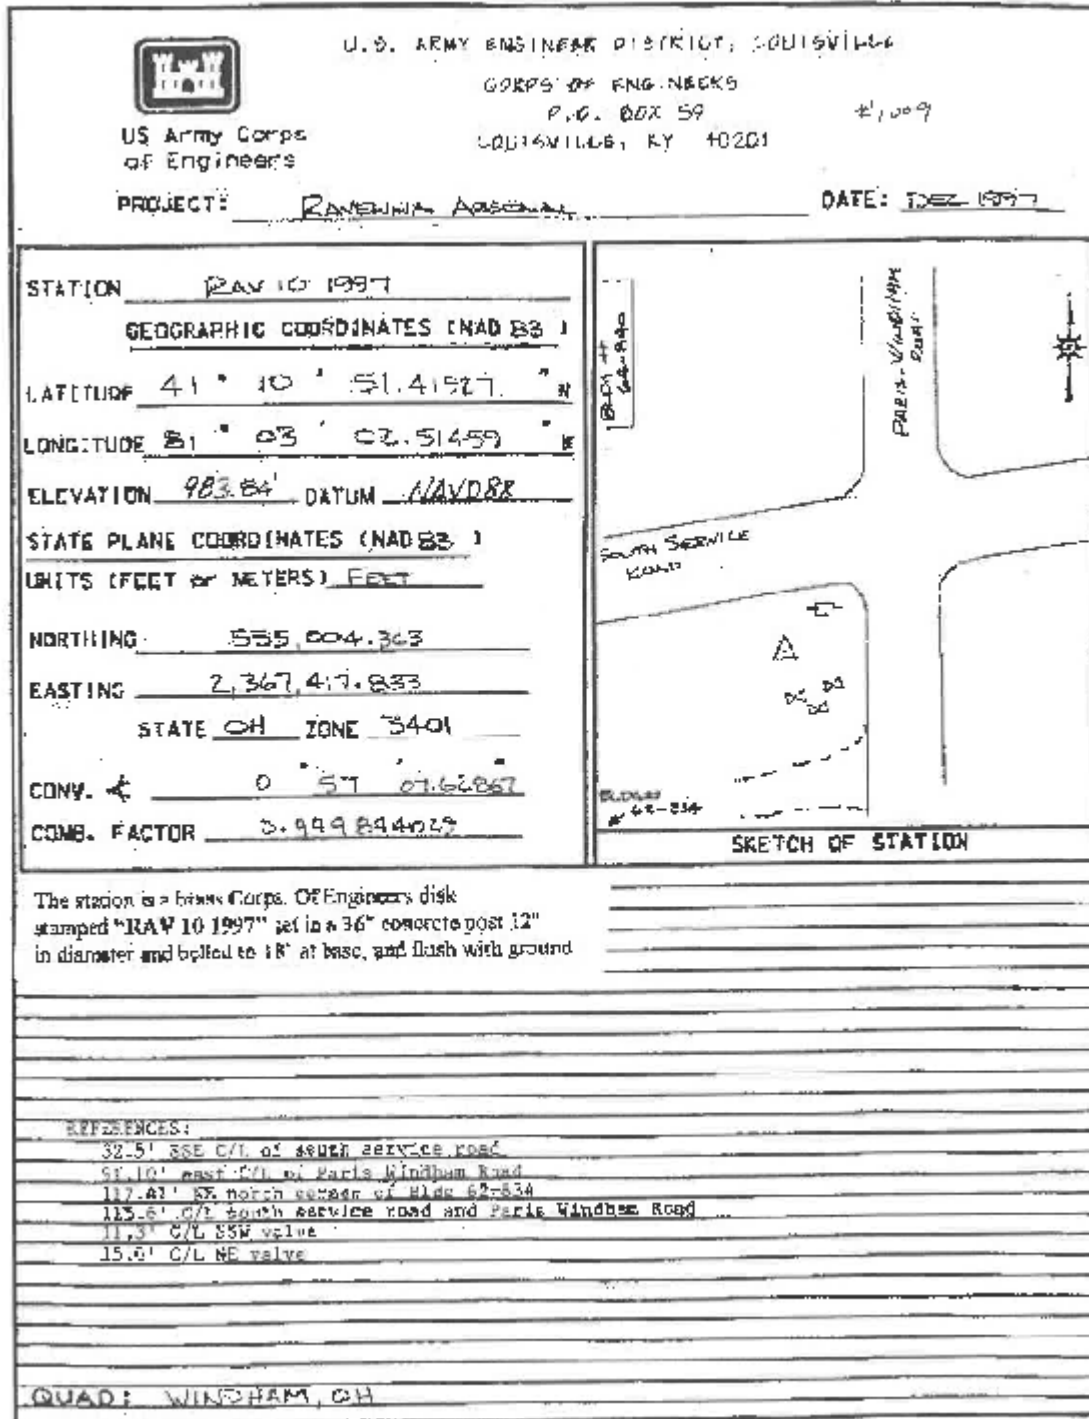 U.S. ARMY ENGINEER DISTRICT, LOUISVILLE
CORPS OF ENGINEERS
P.O. BOX 59
LOUISVILLE, KY 40201
US Army Corps
of Engineers
PROJECT: RAVENNA ARSENAL
DATE: DEC 1997
STATION RAV 10 1997
GEOGRAPHIC COORDINATES (NAD 83 )
LATITUDE 41 ° 10 ' 51.41527 " N
LONGITUDE 81 ° 03 ' 02.51459 " W
ELEVATION 983.84' DATUM NAVD88
STATE PLANE COORDINATES (NAD 83 )
UNITS (FEET or METERS) FEET
NORTHING 555,004.363
EASTING 2,367,417.833
STATE OH ZONE 3401
CONV. 0 ° 57 '
COMB. FACTOR
BLDG #
PARIS-WINDHAM
ROAD
SOUTH SERVICE
ROAD
62-834
SKETCH OF STATION
The station is a brass Corps. Of Engineers disk
stamped "RAV 10 1997" set in a 36" concrete post 12"
in diameter and belled to 18" at base, and flush with ground
REFERENCES:
32.5' SSE C/L of south service road
east C/L of Paris Windham Road
north corner of Bldg 62-834
C/L south service road and Paris Windham Road
11.3' C/L SSW valve
15.0' C/L NE valve
QUAD: WINDHAM, OH